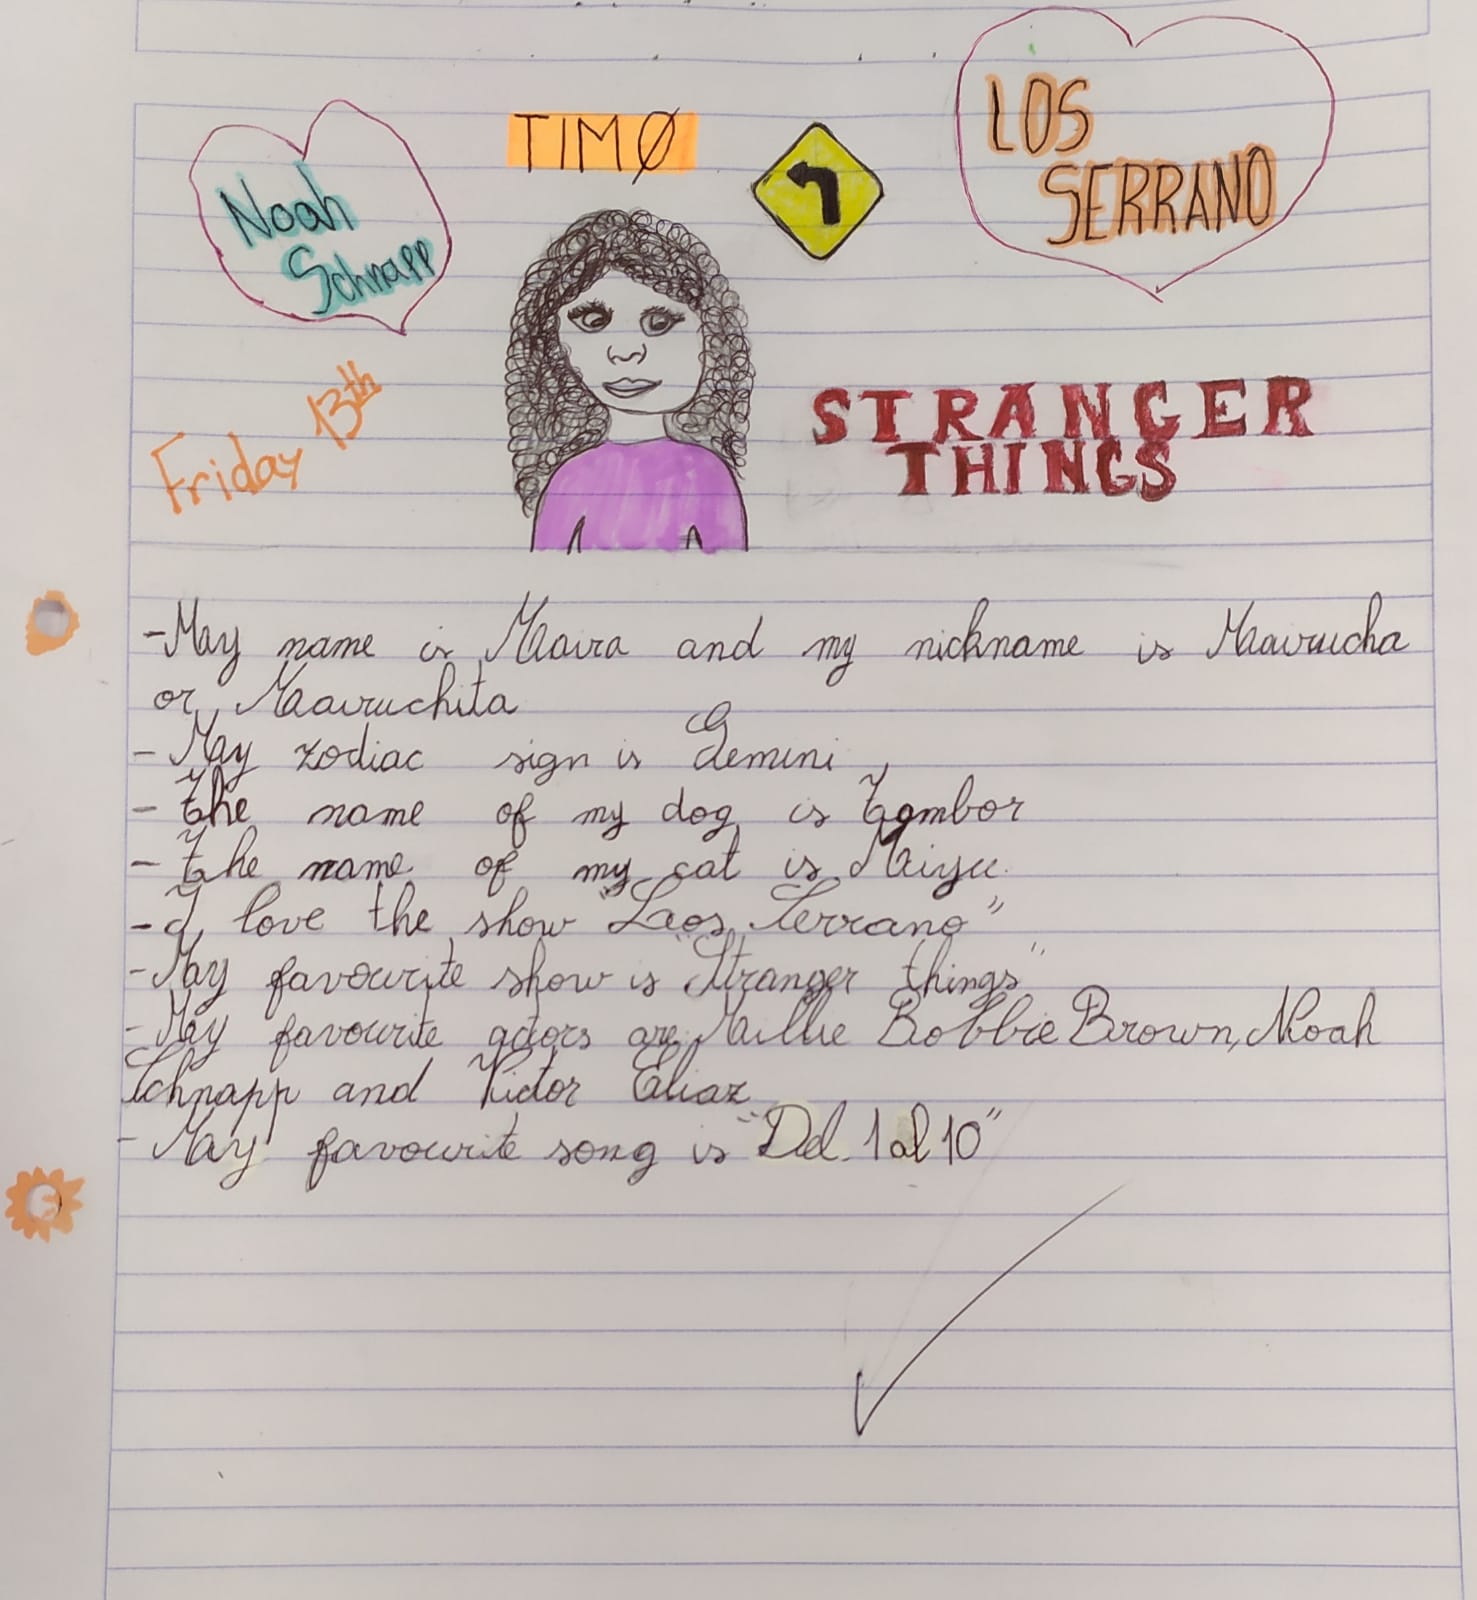 Noah
Schnapp
TIMØ
LOS
SERRANO
Friday 13th
STRANGER
THINGS
-May name is Maira and my nickname is Mairucha
or Mairuchita
- May zodiac sign is Gemini
- The name of my dog is Tambor
- The name of my cat is Maiyu.
- I love the show "Los Serrano"
- May favourite show is "Stranger things"
- May favourite actors are Millie Bobbie Brown, Noah
Schnapp and Victor Eliaz
- May favourite song is "Del 1 al 10"